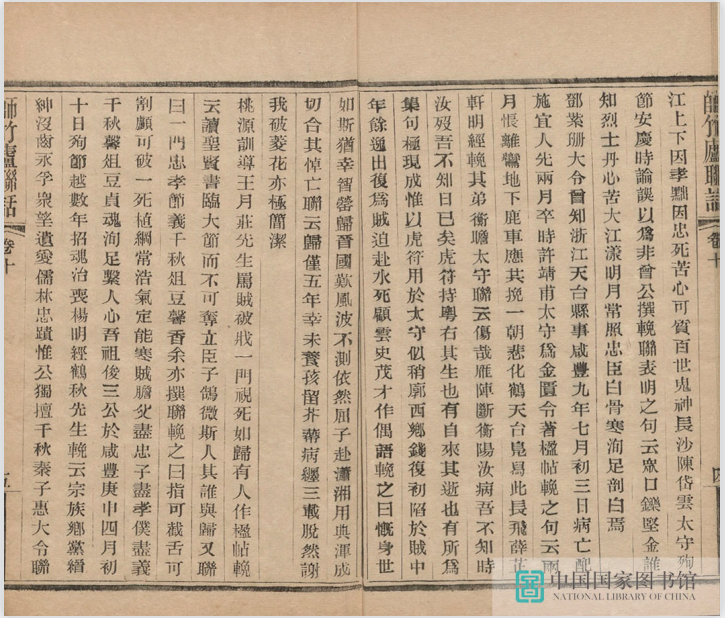 師竹廬聯話 卷十
江上下因孝黜因忠死苦心可質百世鬼神長沙陳岱雲太守殉
節安慶時論誤以為非曾公撰輓聯表明之句云眾口鑠堅金誰
知烈士丹心苦大江漾明月常照忠臣白骨寒洵足剖白焉
鄧紫珊大令曾知浙江天台縣事咸豐九年七月初三日病亡配
施宜人先兩月卒時許靖甫太守為金匱令著楹帖輓之句云兩
月恨離鸞地下鹿車應共挽一朝悲化鶴天台鳧舄此長飛薛花
軒明經輓其弟衡瞻太守聯云傷哉雁陣斷衡陽汝病吾不知時
汝歿吾不知日已矣虎符持粵右其生也有自來其逝也有所為
集句極現成惟以虎符用於太守似稍廓西鄉錢復初陷於賊中
年餘逸出復為賊迫赴水死顧雲史茂才作偶語輓之曰慨身世
如斯猶幸智罃歸晉國歎風波不測依然屈子赴瀟湘用典渾成
切合其悼亡聯云歸僅五年幸未聱孩留芥蒂病纏三載脫然謝
我破菱花亦極簡潔
桃源訓導王月莊先生罵賊被戕一門視死如歸有人作楹帖輓
云讀聖賢書臨大節而不可奪立臣子鵠微斯人其誰與歸又聯
曰一門忠孝節義千秋俎豆馨香余亦撰聯輓之曰指可截舌可
割顱可破一死植綱常浩氣定能寒賊膽父盡忠子盡孝僕盡義
千秋馨俎豆貞魂洵足繫人心吾祖俊三公於咸豐庚申四月初
十日殉節越數年招魂治喪楊明經鶴秋先生輓云宗族鄉黨縉
紳沒齒永孚眾望遺愛儒林忠蹟惟公獨擅千秋秦子惠大令聯
師竹廬聯話 卷十 五
中国国家图书馆
NATIONAL LIBRARY OF CHINA